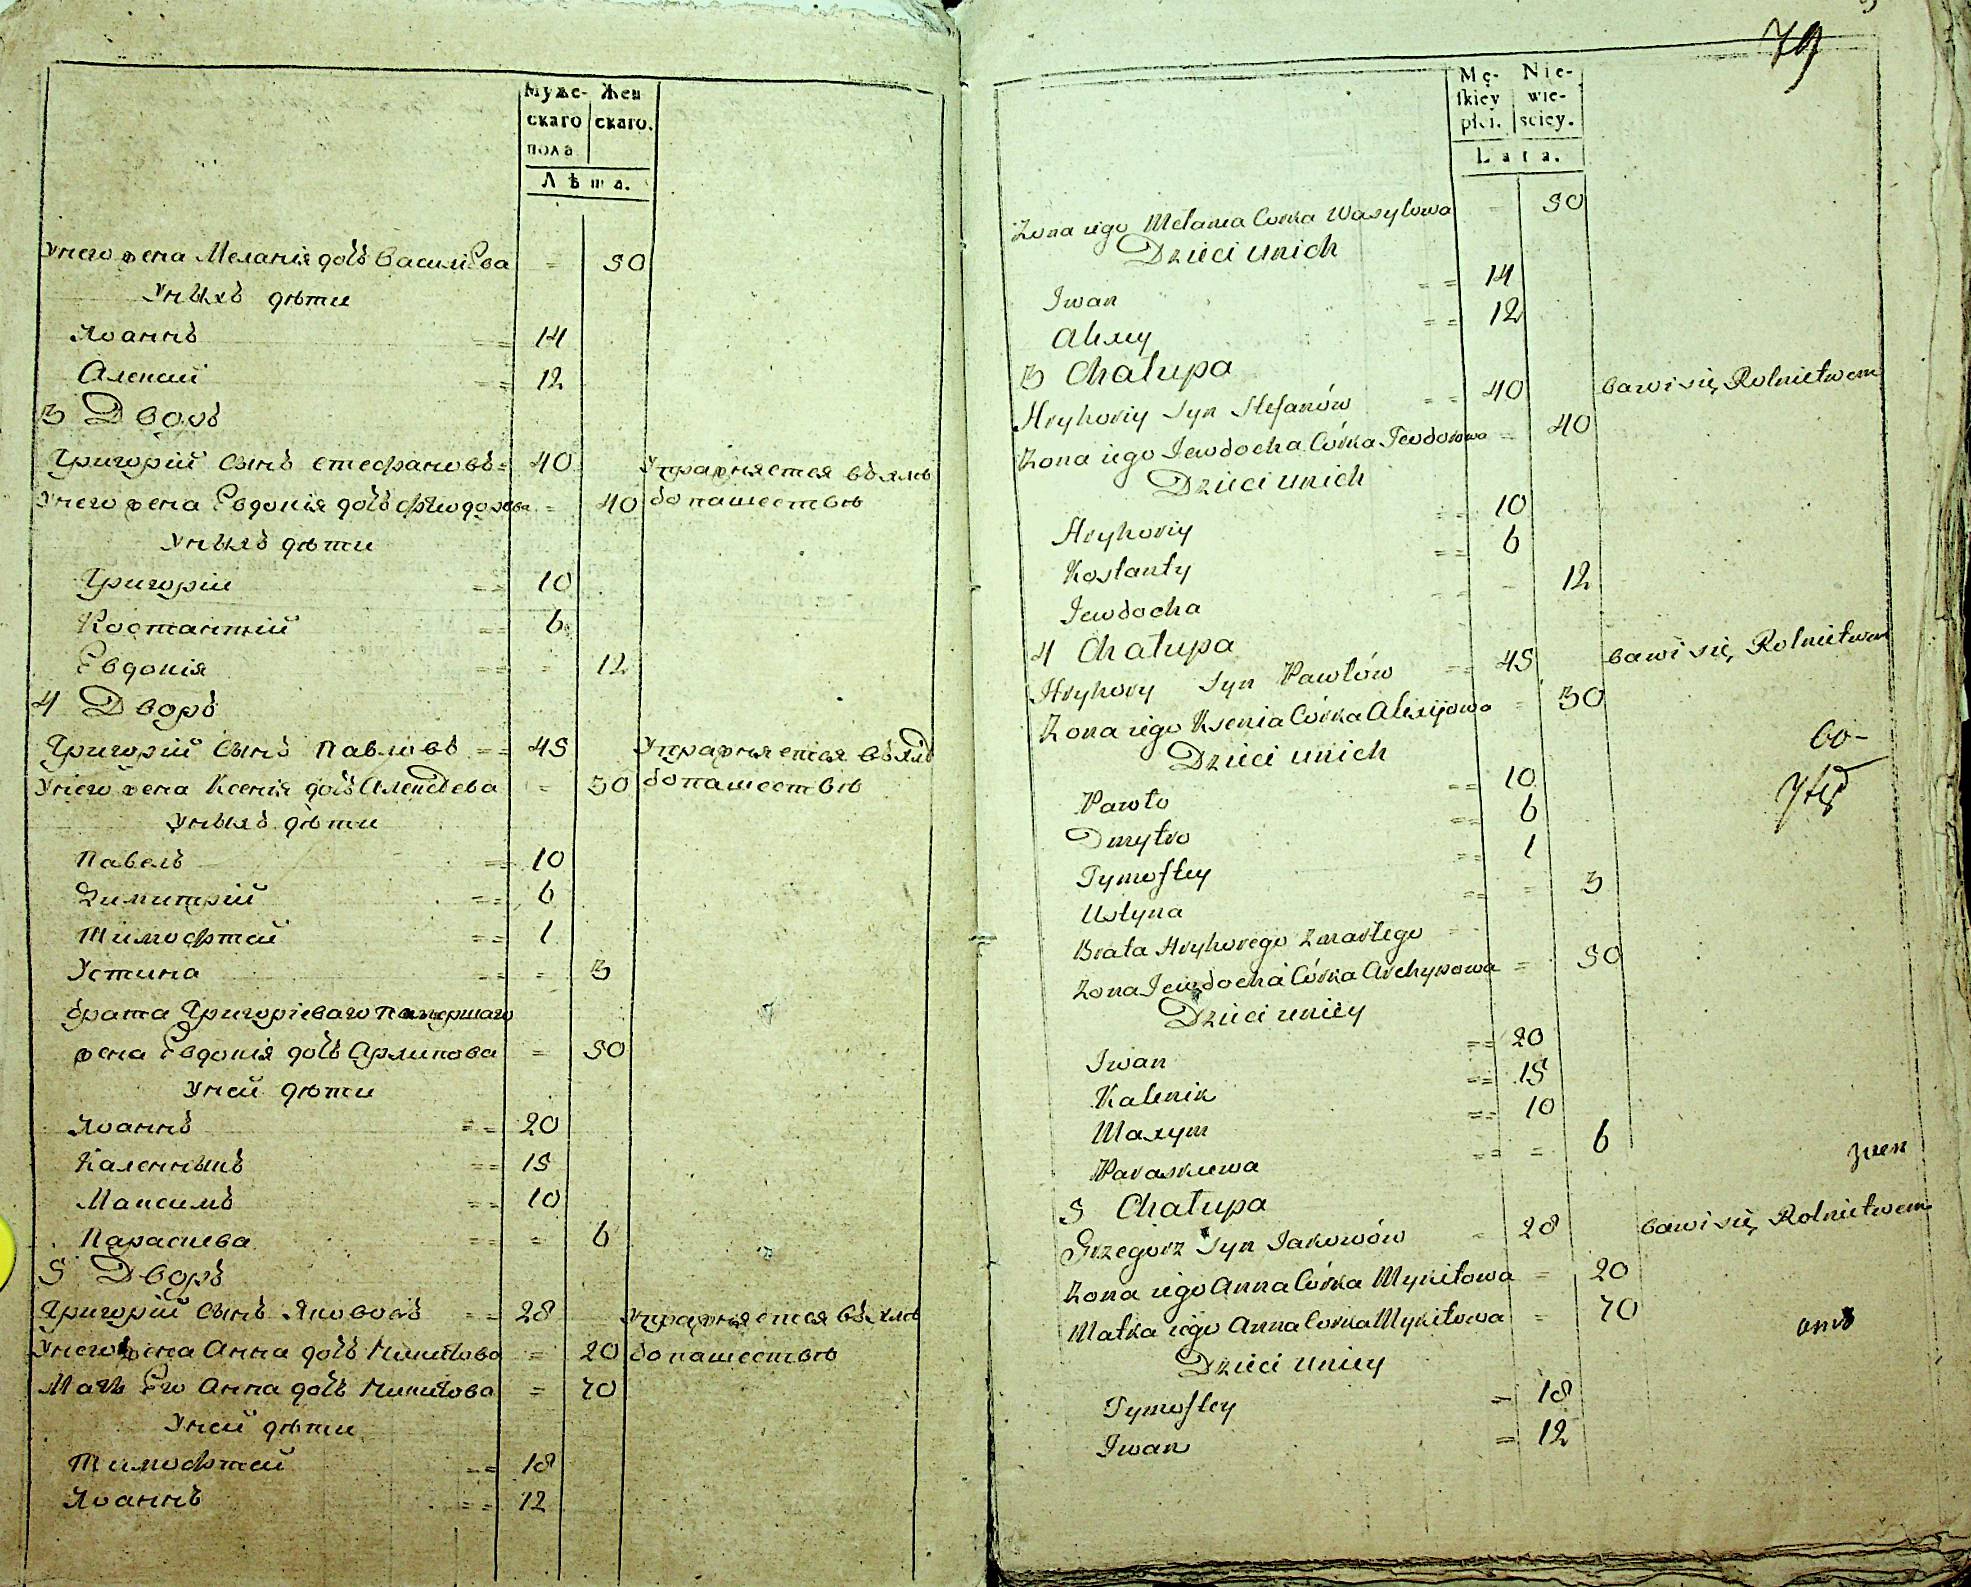 Муже- Жен
скаго скаго.
пола
Лѣта.
Унего жена Меланія дочь Василіева = 50
Унихъ дѣти
Іоаннъ == 14
Алексій == 12
3 Дворъ
Григорій сынъ Стефановъ = 40 Упражняется вхлѣ
Унего жена Евдокія дочь Фіодорова = 40 бопашествѣ
Унихъ дѣти
Григорій == 10
Костантій == 6
Евдокія == = 12
4 Дворъ
Григорій сынъ Павловъ == 45 Упражняется вхлѣ
Унего жена Ксенія дочь Алексѣева = 30 бопашествѣ
Унихъ дѣти
Павелъ == 10
Димитрій == 6
Тимофтей == 1
Устина == = 3
брата Григоріеваго помершаго
жена Евдокія дочь Архипова = 50
Уней дѣти
Іоаннъ == 20
Каленникъ == 15
Максимъ == 10
Параскева == = 6
5 Дворъ
Григорій сынъ Якововъ == 28 Упражняется вхлѣ
Унего жена Анна дочь Микитова = 20 бопашествѣ
Мать Его Анна дочь Микитова = 70
Уней дѣти
Тимофтей == 18
Іоаннъ == 12
79
Mę- Nie-
skiey wie-
płci. sciey.
Lata.
Zona iego Melania Corka Wasylowa = 50
Dzieci unich
Iwan == 14
Alexy == 12
3 Chałupa
Hryhoriy Syn Stefanów == 40 bawi się Rolnictwem
Zona iego Jewdocha Córka Teodorowa = 40
Dzieci unich
Hryhoriy == 10
Kostanty == 6
Jewdocha == - 12
4 Chałupa
Hryhory Syn Pawłów == 45 bawi się Rolnictwem
Zona iego Ksenia Córka Alexijowa = 30
Dzieci unich
Pawło == 10
Dmytro == 6
Tymoftey == 1
Ustyna == = 3
Brata Hryhorego zmarłego
Zona Jewdocha Córka Archypowa = 50
Dzieci uniey
Iwan == 20
Kalenik == 15
Maxym == 10
Paraskiewa == = 6
5 Chałupa
Grzegorz Syn Jakowów = 28 bawi się Rolnictwem
Zona iego Anna Córka Mykitowa = 20
Matka iego Anna Corka Mykitowa = 70
Dzieci uniey
Tymoftey = 18
Iwan = 12